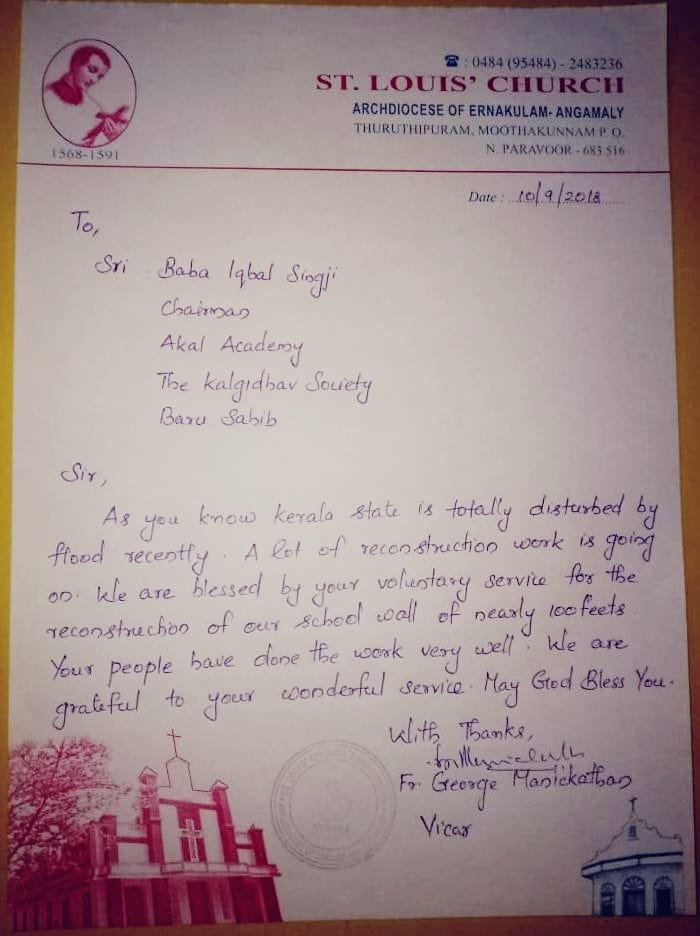 ☎ : 0484 (95484) - 2483236
ST. LOUIS' CHURCH
ARCHDIOCESE OF ERNAKULAM- ANGAMALY
THURUTHIPURAM, MOOTHAKUNNAM P. O.
N. PARAVOOR - 683 516
1568-1591
Date : 10/9/2018
To,
Sri Baba Iqbal Singji
Chairman
Akal Academy
The Kalgidhav Society
Baru Sahib
Sir,
As you know Kerala state is totally disturbed by
flood recently. A lot of reconstruction work is going
on. We are blessed by your voluntary service for the
reconstruction of our school wall of nearly 100 feets.
Your people have done the work very well. We are
grateful to your wonderful service. May God Bless You.
With Thanks,
Fr. George Manickathan
Vicar